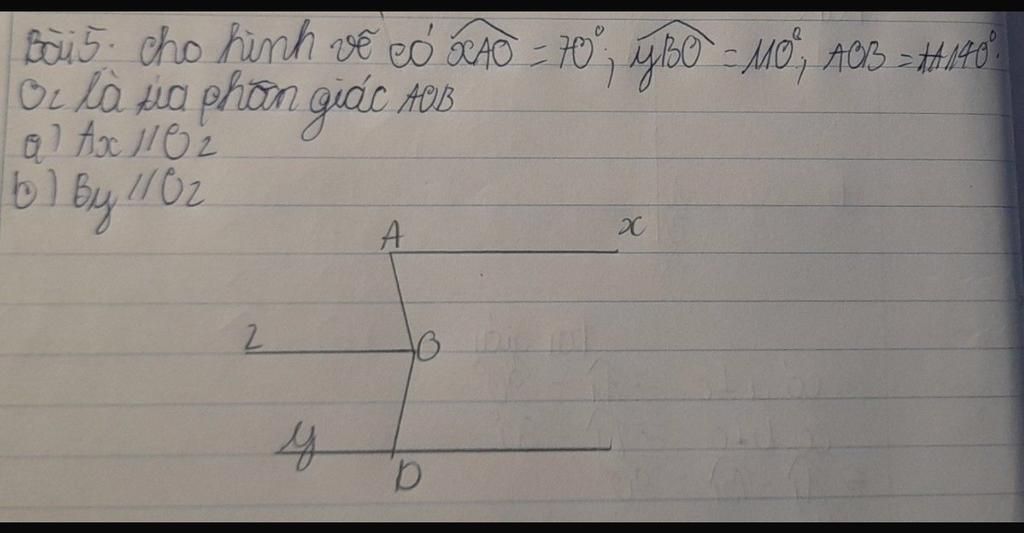 Bài 5. cho hình vẽ có xAO = 70°; yBO = 110°; AOB = 140°.
Oz là tia phân giác AOB
a) Ax // Oz
b) By // Oz
A x
z O
y
D